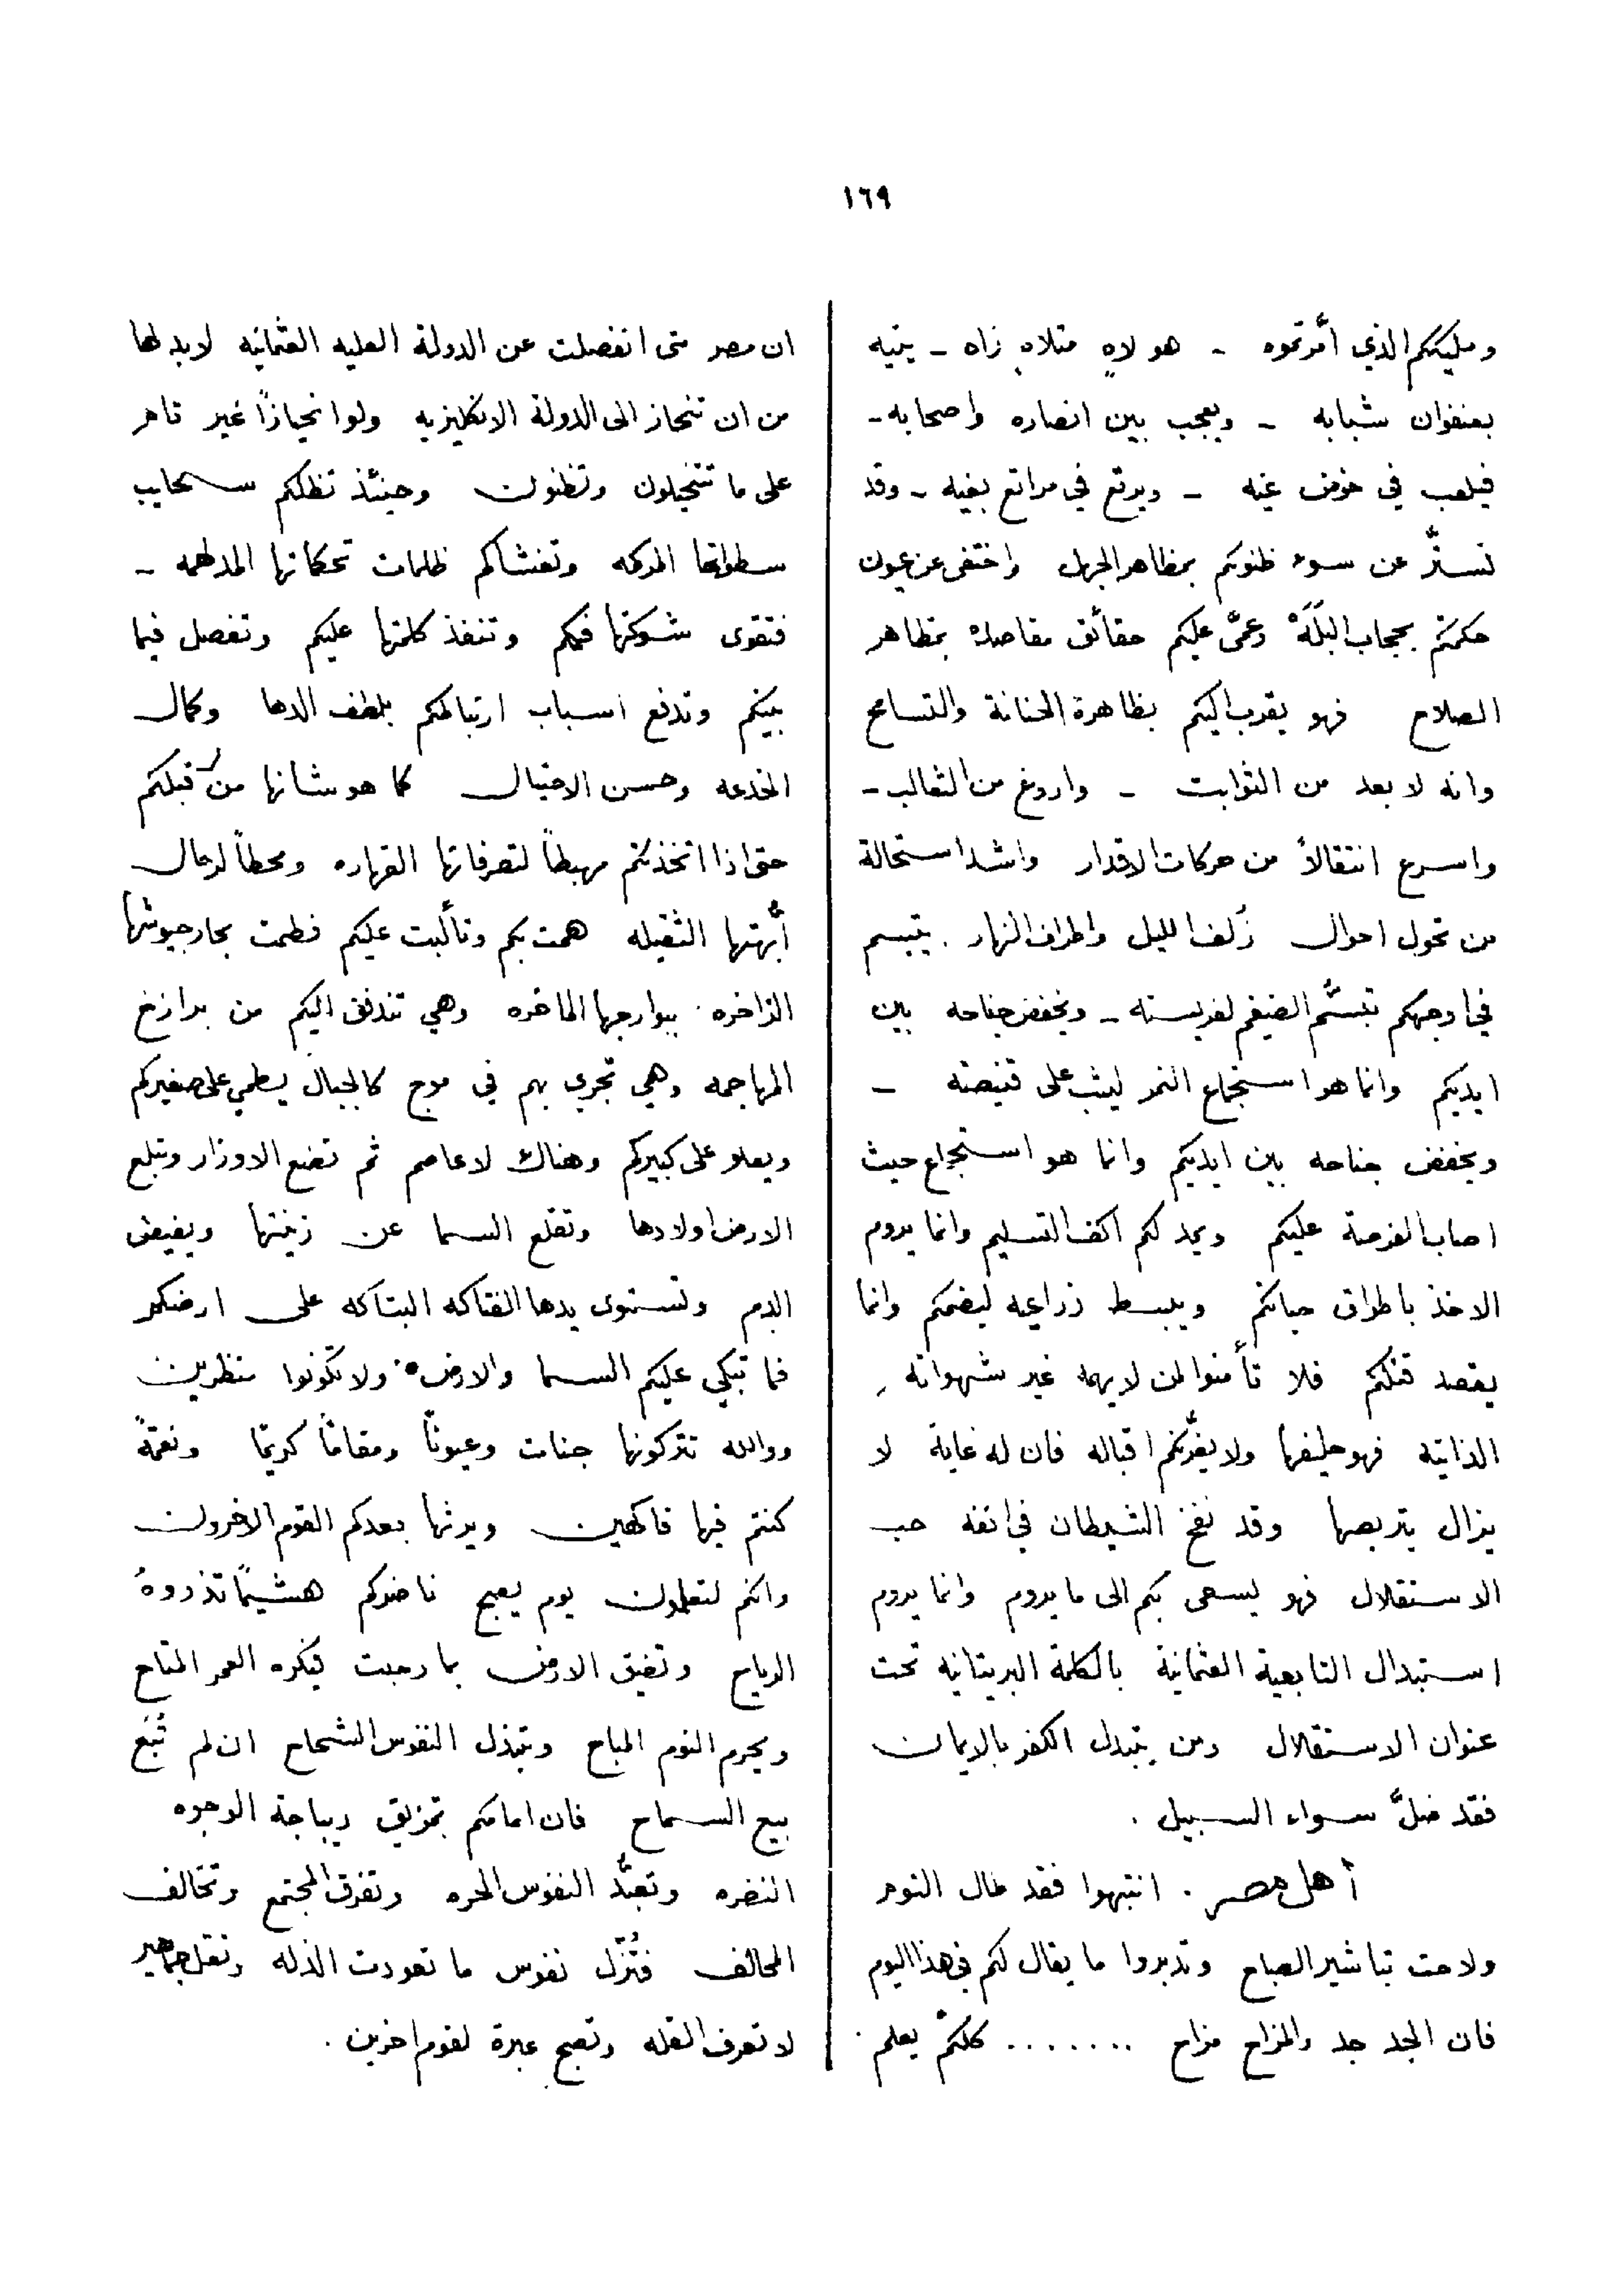 ١٦٩
ومليككم الذي أمّرتموه - هو لاهٍ متلاهٍ زاه - يتيه
بعنفوان شبابه - ويعجب بين انصاره واصحابه -
فيلعب في خوض غيه - ويرتع في مراتع بغيه - وقد
تستّر عن سوء ظنونكم بمظاهر الجهل واختفى عن عيون
حكمتكم بحجاب البَلَهْ وعمّى عليكم حقائق مقاصده بمظاهر
الصلاح فهو يقرب اليكم بظاهرة الحنانة والتسامح
وانه لا بعد من الثوابت - واروغ من الثعالب -
واسرع انتقالاً من حركات الاقدار واشد استحالة
من تحول احوال زُلف الليل واطراف النهار . يتبسم
في اوجهكم تبسُّم الضيغم لفريسته - ويخفض جناحه بين
ايديكم وانما هو استجماع النمر ليثب على قنيصته -
ويخفض جناحه بين ايديكم وانما هو استجماع حيث
اصاب الفرصة عليكم ويمد لكم اكف التسليم وانما يروم
الاخذ باطراق حياتكم ويبسط زراعيه ليضمكم وانما
يقصد قتلكم فلا تأمنوا لمن لا يهمه غير شهواته
الذاتيه فهو حليفها ولا يغرّنكم اقباله فان له غاية لا
يزال يتربصها وقد نفخ الشيطان في انفه حب
الاستقلال فهو يسعى بكم الى ما يروم وانما يروم
استبدال التابعية العثمانية بالكلمة البريتانيه تحت
عنوان الاستقلال ومن يتبدل الكفر بالايمان
فقد ضلّ سواء السبيل .
أهل مصر . انتبهوا فقد طال النوم
ولاحت تباشير الصباح وتدبروا ما يقال لكم في هذا اليوم
فان الجد جد والمزاح مزاح ....... كلكم يعلم .
ان مصر متى انفصلت عن الدولة العليه العثمانيه لابد لها
من ان تنحاز الى الدولة الانكليزيه ولو انحيازاً غير تام
على ما تتخيلون وتظنون وحينئذ تظلكم سحايب
سطواتها المركمه وتغشاكم ظلمات تحكماتها المدلهمه -
فتقوى شوكتها فيكم وتنفذ كلمتها عليكم وتفصل فيما
بينكم وتدفع اسباب ارتباككم بلطف الدها وكمال
الخدعه وحسن الاحتيال كما هو شانها من قبلكم
حتى اذا اتخذتكم مهبطاً لتصرفاتها القهاره ومحطاً لرحال
أبّهتها الثقيله همت بكم وتألبت عليكم فطمت بحار جيوشها
الزاخره ببوارجها الماخره وهي تتدفق اليكم من برازخ
المهاجمه وهي تجري بهم في موج كالجبال يطمي على صغيركم
ويعلو على كبيركم وهناك لا عاصم ثم تضع الاوزار وتبلع
الارض اولادها وتقلع السما عن زينتها ويفيض
الدم وتستوى يدها الفتاكه البتاكه على ارضكم
فما تبكي عليكم السما والارض ولا تكونوا منظرين
ووالله تتركونها جنات وعيوناً ومقاماً كريماً ونعمةً
كنتم فيها فاكهين ويرثها بعدكم القوم الاخرون
وانكم لتعلمون يوم يصبح ناضركم هشيماً تذروهُ
الرياح وتضيق الارض بما رحبت فيكره العمر المتاح
ويحرم النوم المباح وتبتذل النفوس الشحاح ان لم تُبَع
بيع السماح فان امامكم تمزيق ديباجة الوجوه
النضره وتعبّد النفوس الحره وتفرق المجتمع وتخالف
المحالف فتُنزّل نفوس ما تعودت الذله وتقل جماهير
لا تعرف القله وتصبح عبرة لقوم اخرين .